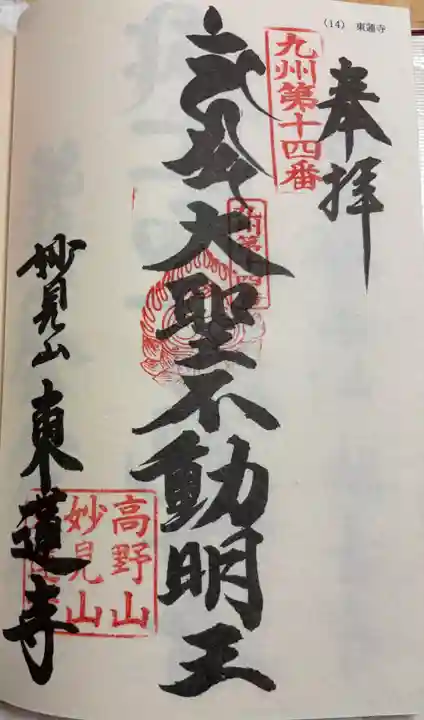 (14) 東蓮寺
奉拝
九州第十四番
大聖不動明王
高野山
妙見山
妙見山 東蓮寺